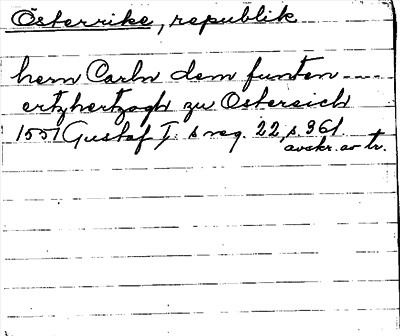 Österrike, republik
hern Carln dem funten ----
ertzhertzogh zu Ostereich
1551 Gustaf I:s reg. 22, s. 361.
avskr. av tr.